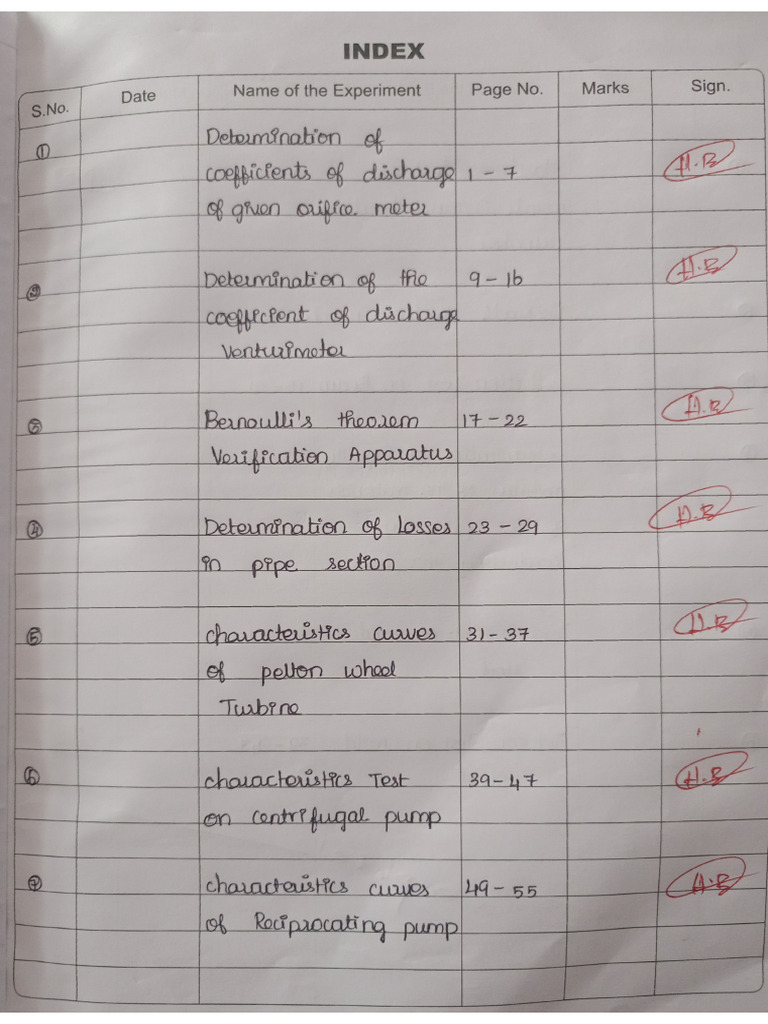 INDEX
S.No. Date Name of the Experiment Page No. Marks Sign.
① Determination of
coefficients of discharge 1 - 7 H.B
of given orifice meter
② Determination of the 9 - 16 H.B
coefficient of discharge
Venturimeter
③ Bernoulli's theorem 17 - 22 H.B
Verification Apparatus
④ Determination of losses 23 - 29 H.B
in pipe section
⑤ characteristics curves 31 - 37 H.B
of pelton wheel
Turbine
⑥ characteristics Test 39 - 47 H.B
on centrifugal pump
⑦ characteristics curves 49 - 55 H.B
of Reciprocating pump